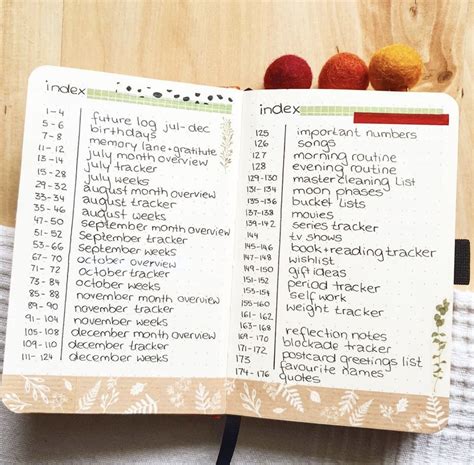 index
1-4 future log jul-dec
5-6 birthdays
7-8 memory lane+gratitude
11-12 july month overview
13-14 july tracker
15-28 july weeks
29-32 august month overview
33-34 august tracker
35-46 august weeks
47-50 september month overview
51-52 september tracker
53-66 september weeks
67-70 october overview
71-72 october tracker
73-84 october weeks
85-88 november month overview
89-90 november tracker
91-104 november weeks
105-108 december month overview
109-110 december tracker
111-124 december weeks
index
125 important numbers
126 songs
127 morning routine
128 evening routine
129-130 mastercleaning list
131-134 moon phases
135-136 bucket lists
137-138 movies
139-142 series tracker
144 tv shows
145-146 book+reading tracker
147-148 wishlist
149-150 gift ideas
period tracker
self work
155-160 weight tracker
161-162
163-168 reflection notes
169-170 blockade tracker
171-172 postcard greetings list
173 favourite names
174-176 quotes